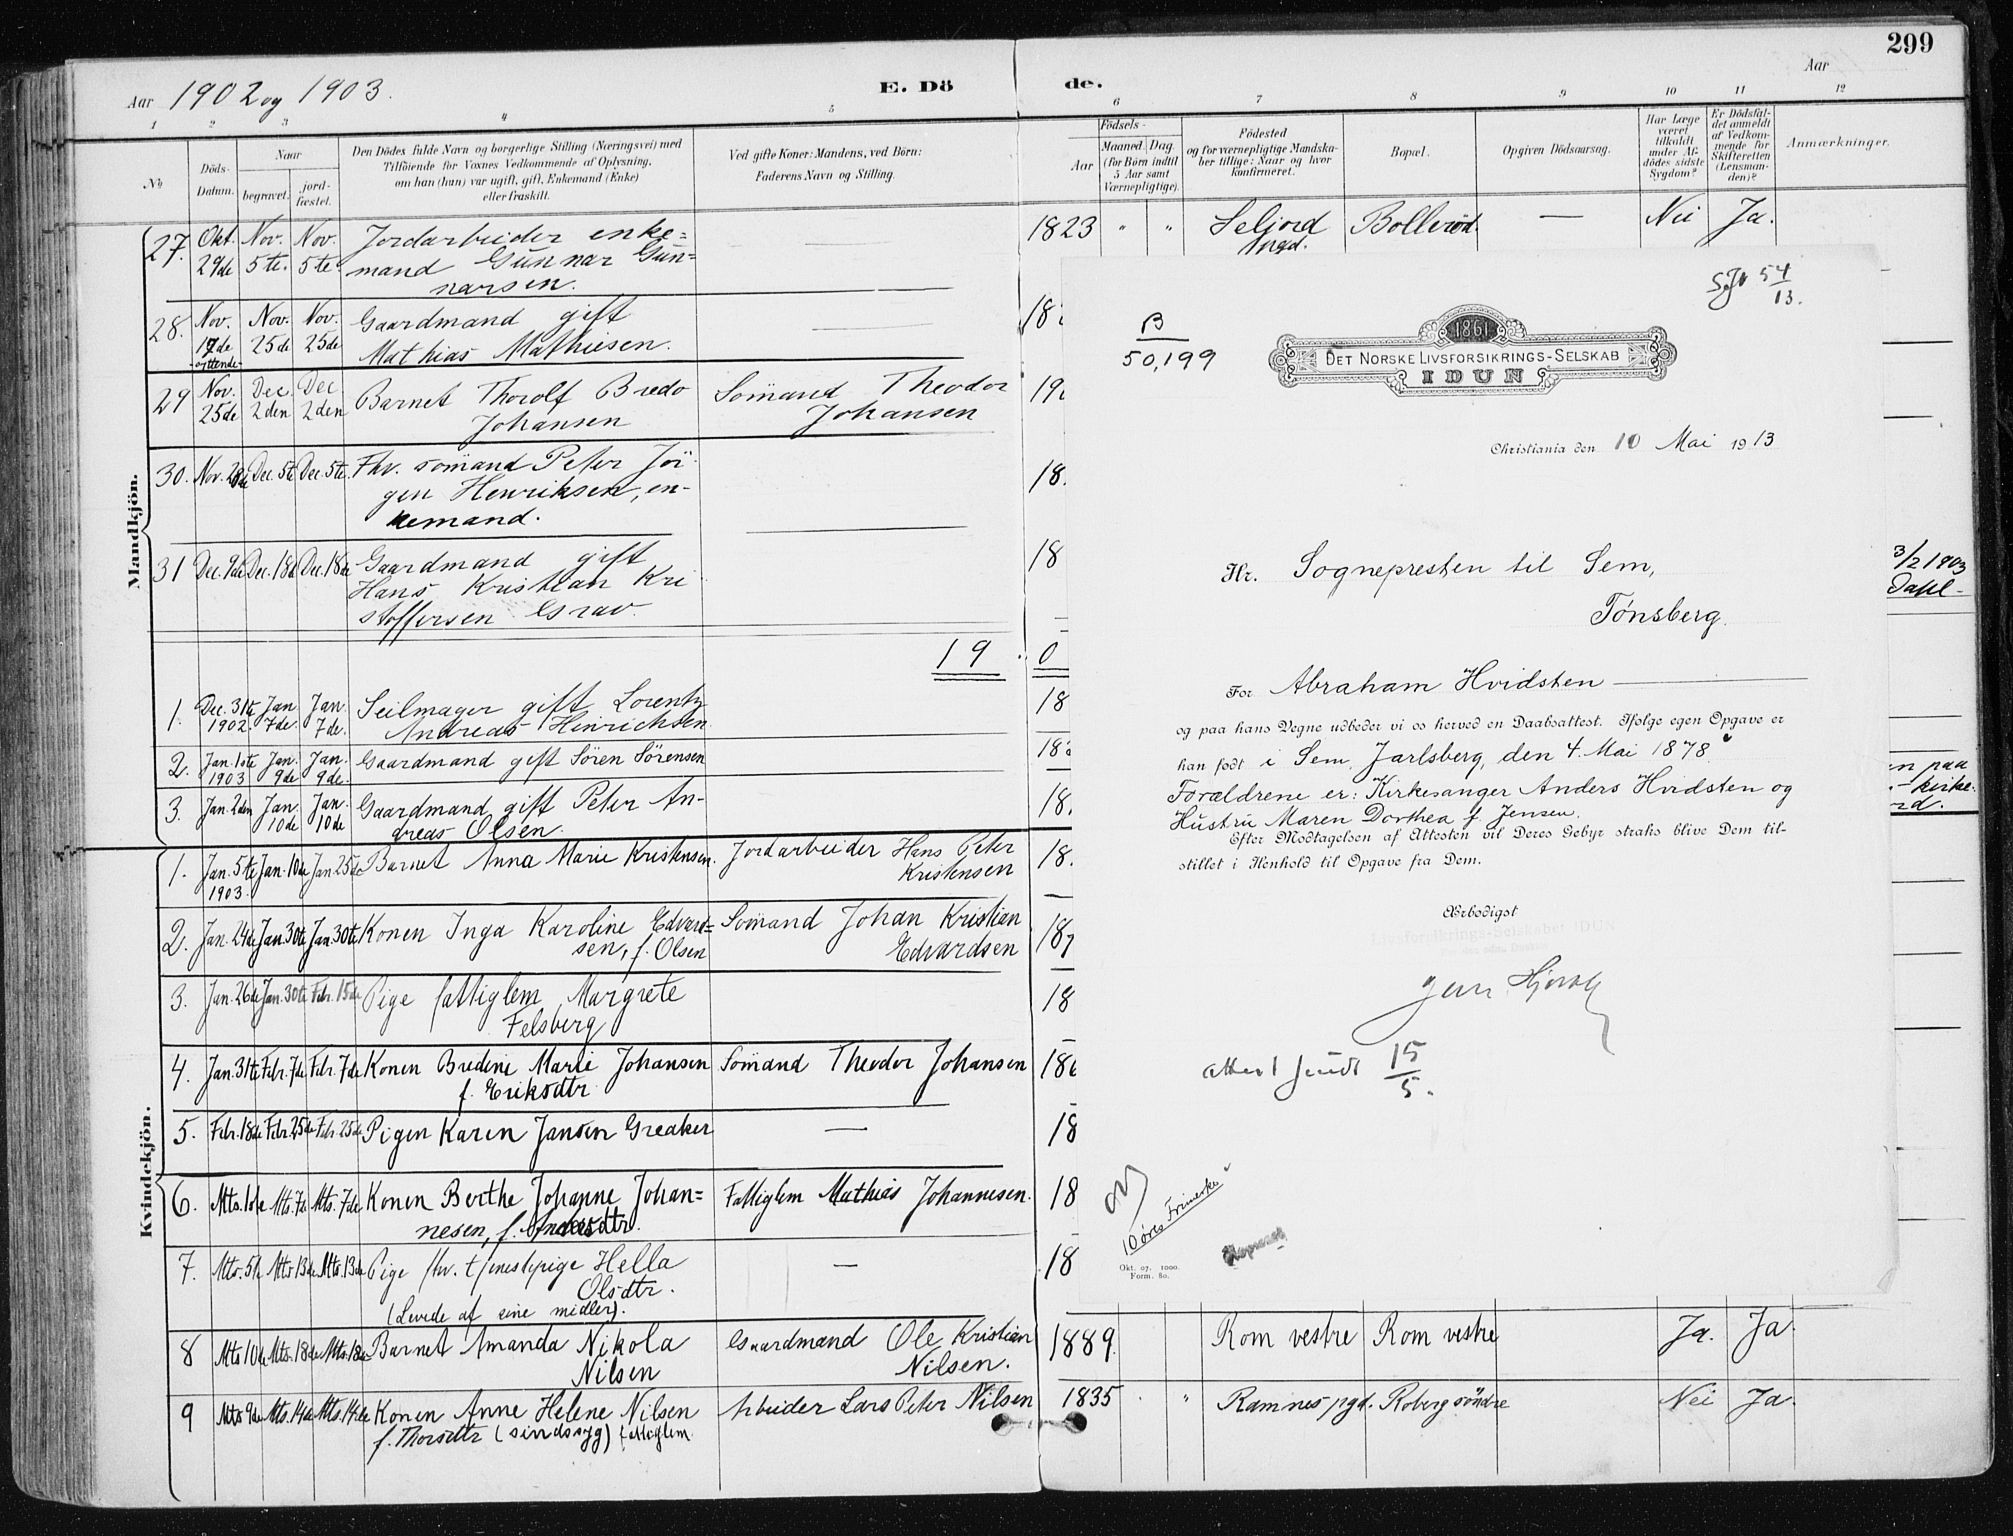 299
Aar 1902 og 1903.
E. Dö de.
Aar
1 2 3 4 5 6 7 8 9 10 11 12
No
Döds-Datum.
Naar
begravet.
jord-fæstet.
Den Dödes fulde Navn og borgerlige Stilling (Næringsvei) med
Tilföiende for Voxnes Vedkommende af Oplysning,
om han (hun) var ugift, gift, Enkemand (Enke)
eller fraskilt.
Ved gifte Koner: Mandens, ved Börn:
Faderens Navn og Stilling.
Födsels-
Aar
Maaned. Dag.
(for Börn indtil
5 Aar samt
Værnepligtige).
Födested
og for værnepligtige Mandska-
ber tillige: Naar og hvor
konfirmeret.
Bopæl.
Opgiven Dödsaarsag.
Har Læge
været
tilkaldt
under Af-
dödes sidste
Sygdom?
Er Dödsfal-
det anmeldt
af Vedkom-
mende for
Skifteretten
(Lensman-
den)?
Anmærkninger.
Mandkjön.
27. Okt. 29de Nov. 5te. Nov. 5te. Jordarbeider enke=
mand Gunnar Gun=
narsen. — 1823 " " Seljord pgd. Bollerød. — Nei Ja.
28. Nov. 17de ottende Nov. 25de Nov. 25de Gaardmand gift
Mathias Mathiesen. — 18
29 Nov. 25de Dec. 2den Dec 2den Barnet Thorolf Bredo
Johansen Sömand Theodor
Johansen 19
30. Nov. 28de Dec. 5te Dec. 5te. Fhv. sömand Peter Jör-
gen Henriksen, en-
kemand. — 18
31 Dec. 9de Dec. 18de Dec. 18de Gaardmand gift
Hans Kristian Kri
stoffersen Grav. 18
3/2 1903
Dahl
19 0
1. Dec. 31te 1902. Jan 7de. Jan. 7de. Seilmager gift Lorentz
Andreas Henrichsen 18
2. Jan. 1ste 1903 Jan. 9de Jan. 9de. Gaardmand gift Søren Sørensen 18
3. Jan. 2den Jan. 10de Jan. 10de Gaardmand gift Peter An-
dreas Olsen. 18
en paa
- kirke-
rd.
Kvindekjön.
1. Jan. 5te 1903. Jan. 10de Jan 25de Barnet Anna Marie Kristensen. Jordarbeider Hans Peter
Kristensen 18
2. Jan. 24de Jan. 30te Jan. 30te Konen Inga Karoline Edvard=
sen, f. Olsen Sömand Johan Kristian
Edvardsen 187
3. Jan. 26de Jan. 30te Febr. 15de Pige fattiglem Margrete
Felsberg 18
4. Jan. 31te Febr. 7de Febr. 7de Konen Bredine Marie Johansen
f. Eriksdtr Sömand Theodor Johansen 186
5. Febr. 18de Febr. 25de Febr. 25de Pigen Karen Jansen Greaker — 18
6. Mts. 1ste Mts. 7de Mts. 7de Konen Berthe Johanne Johan=
nesen, f. Andersdtr. Fattiglem Mathias Johannesen. 18
7. Mts. 5te Mts. 13de Mts. 13de Pige fhv. tjenestepige Hella
Olsdtr.
(Levede af sine midler). — 18
8 Mts 10de Mts. 18de Mts. 18de Barnet Amanda Nikola
Nilsen Gaardmand Ole Kristian
Nilsen. 1889. Rom vestre Rom vestre Ja. Ja.
9 Mts 9de Mts. 14de Mts. 14de Konen Anne Helene Nilsen
f. Thorsdtr (sindssyg) fattiglem. Arbeider Lars Peter Nilsen 1835 " " Ramnes pgd. Roberg søndre Nei Ja.
54/13.
B
50,199
1861
DET NORSKE LIVSFORSIKRINGS-SELSKAB
IDUN
Christiania den 10 Mai 1913
Hr. Sognepresten til Sem,
Tønsberg.
For Abraham Hvidsten
og paa hans Vegne udbeder vi os herved en Daabsattest. Ifølge egen Opgave er
han født i Sem, Jarlsberg, den 4. Mai 1878.
Forældrene er: Kirkesanger Anders Hvidsten og
Hustru Maren Dorthea f. Jensen.
Efter Modtagelsen af Attesten vil Deres Gebyr straks blive Dem til-
stillet i Henhold til Opgave fra Dem.
Ærbodigst
Livsforsikrings-Selskabet IDUN
Attest sendt 15/5.
10 øres Frimerke
Okt. 07. 1000.
Form. 80.